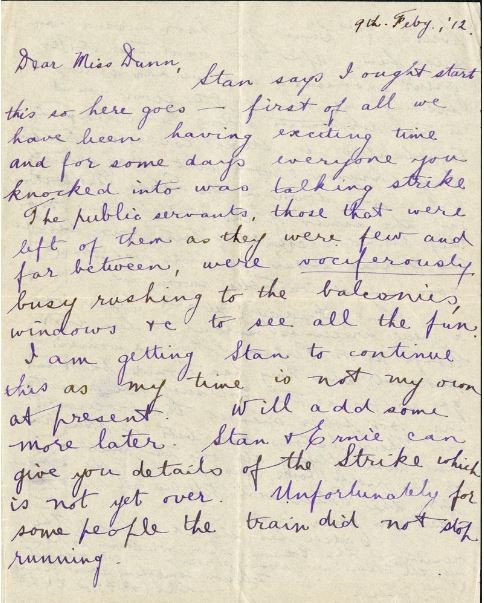 9th. Feby., '12.
Dear Miss Dunn,
Stan says I ought start
this so here goes — first of all we
have been having exciting time
and for some days everyone you
knocked into was talking strike
The public servants, those that were
left of them as they were few and
far between, were vociferously
busy rushing to the balconies,
windows &c to see all the fun.
I am getting Stan to continue
this as my time is not my own
at present. Will add some
more later. Stan & Ernie can
give you details of the Strike which
is not yet over. Unfortunately for
some people the train did not stop
running.